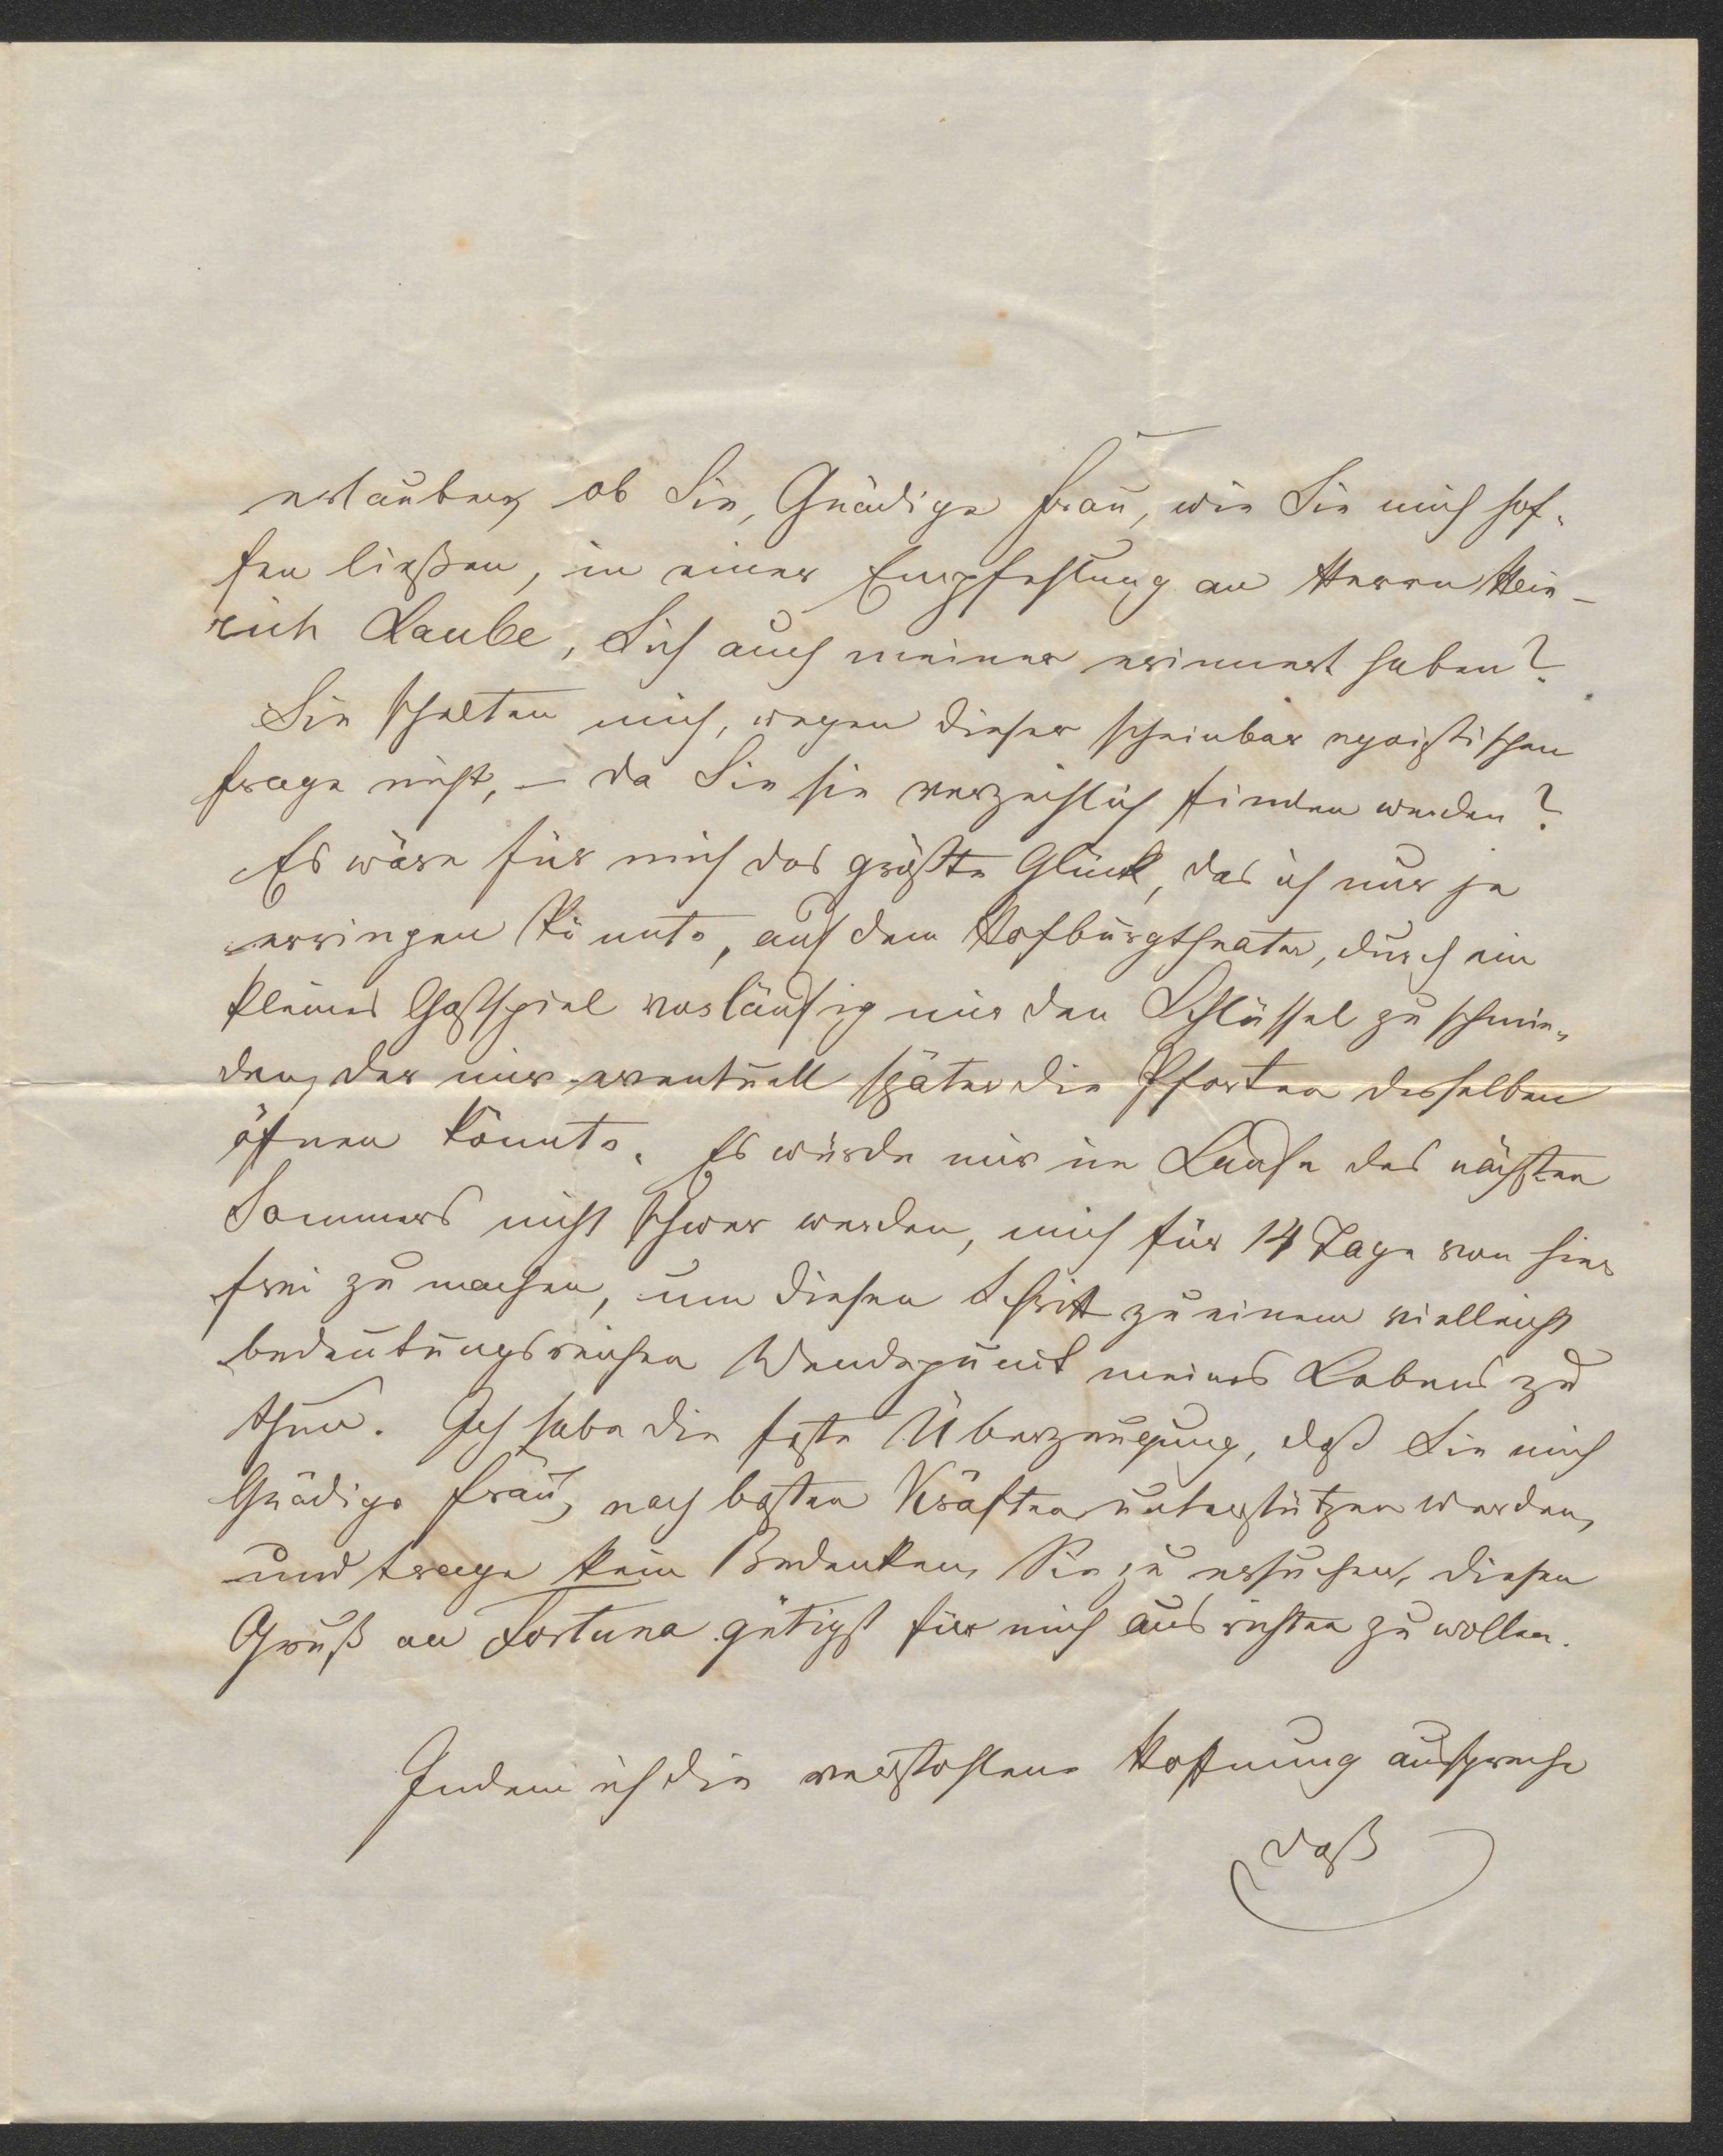 erlauben, ob Sie, Gnädige Frau, wie Sie mich hof-
fen ließen, in einer Empfehlung an Herrn Hein-
rich Laube, Sich auch meiner erinnert haben?
Sie schelten mich, wegen dieser scheinbar egoistischen
Frage nicht, – da Sie sie verzeihlich finden werden?
Es wäre für mich das größte Glück, das ich nur je
erringen könnte, auf dem Hofburgtheater, durch ein
kleines Gastspiel vorläufig mir den Schlüssel zu schmie-
den, der mir eventuell später die Pforten desselben
öfnen könnte. Es würde mir im Laufe des nächsten
Sommers nicht schwer werden, mich für 14 Tage von hier
frei zu machen, um diesen Schritt zu einem vielleicht
bedeutungsreichen Wendepunkt meines Lebens zu
thun. Ich habe die feste Überzeugung, daß Sie mich
Gnädige Frau, nach besten Kräften unterstützen werden,
und trage kein Bedenken, Sie zu ersuchen, diesen
Gruß an Fortuna gütigst für mich ausrichten zu wollen.
Indem ich die verstohlene Hoffnung ausspreche
daß